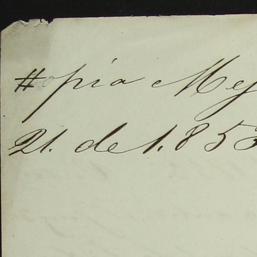 #opia Mey
21. de 1.853